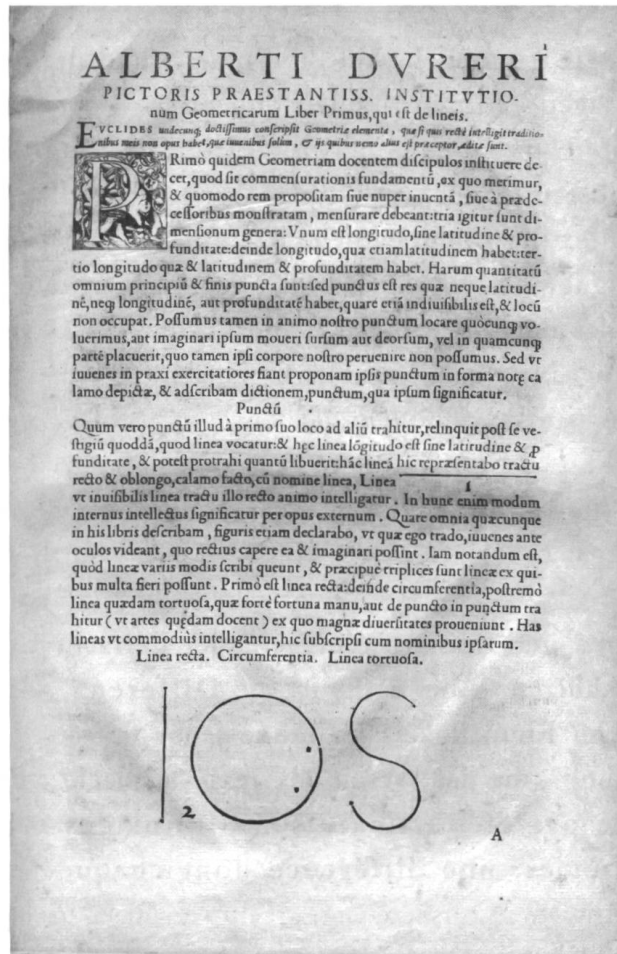 ALBERTI DVRERI
PICTORIS PRAESTANTISS. INSTITVTIO-
num Geometricarum Liber Primus, qui est de lineis.
EVCLIDES undecunq; doctissimus conscripsit Geometriæ elementa, quæ si quis rectè intelligit traditio-
nibus meis non opus habet, quæ iuuenibus solum, & ijs quibus nemo alius est præceptor, æditæ sunt.
PRimò quidem Geometriam docentem discipulos instituere de-
cet, quod sit commensurationis fundamentū, ex quo metimur,
& quomodo rem propositam siue nuper inuentā, siue à præde-
cessoribus monstratam, mensurare debeant: tria igitur sunt di-
mensionum genera: Vnum est longitudo, sine latitudine & pro-
funditate: deinde longitudo, qua etiam latitudinem habet: ter-
tio longitudo quæ & latitudinem & profunditatem habet. Harum quantitatū
omnium principiū & finis puncta sunt: sed punctus est res quæ neque latitudi-
nē, neq; longitudinē, aut profunditatē habet, quare etiā indiuisibilis est, & locū
non occupat. Possumus tamen in animo nostro punctum locare quòcunq; vo-
luerimus, aut imaginari ipsum moueri sursum aut deorsum, vel in quamcunq;
partē placuerit, quo tamen ipsi corpore nostro peruenire non possumus. Sed vt
iuuenes in praxi exercitatiores fiant proponam ipsis punctum in forma notę ca
lamo depictæ, & adscribam dictionem, punctum, qua ipsum significatur.
Punctū .
Quum vero punctū illud à primo suo loco ad aliū trahitur, relinquit post se ve-
stigiū quoddā, quod linea vocatur: & hęc linea lōgitudo est sine latitudine & ꝓ
funditate, & potest protrahi quantū libuerit: hāc lineā hic repræsentabo tractu
recto & oblongo, calamo facto, cū nomine linea, Linea
1
vt inuisibilis linea tractu illo recto animo intelligatur. In hunc enim modum
internus intellectus significatur per opus externum. Quare omnia quæcunque
in his libris describam, figuris etiam declarabo, vt quæ ego trado, iuuenes ante
oculos videant, quo rectius capere ea & imaginari possint. Iam notandum est,
quòd lineæ variis modis scribi queunt, & præcipuè triplices sunt lineæ ex qui-
bus multa fieri possunt. Primò est linea recta: deinde circumferentia, postremò
linea quædam tortuosa, quæ fortè fortuna manu, aut de puncto in punctum tra
hitur (vt artes quędam docent) ex quo magnæ diuersitates proueniunt. Has
lineas vt commodiùs intelligantur, hic subscripsi cum nominibus ipsarum.
Linea recta. Circumferentia. Linea tortuosa.
2
A